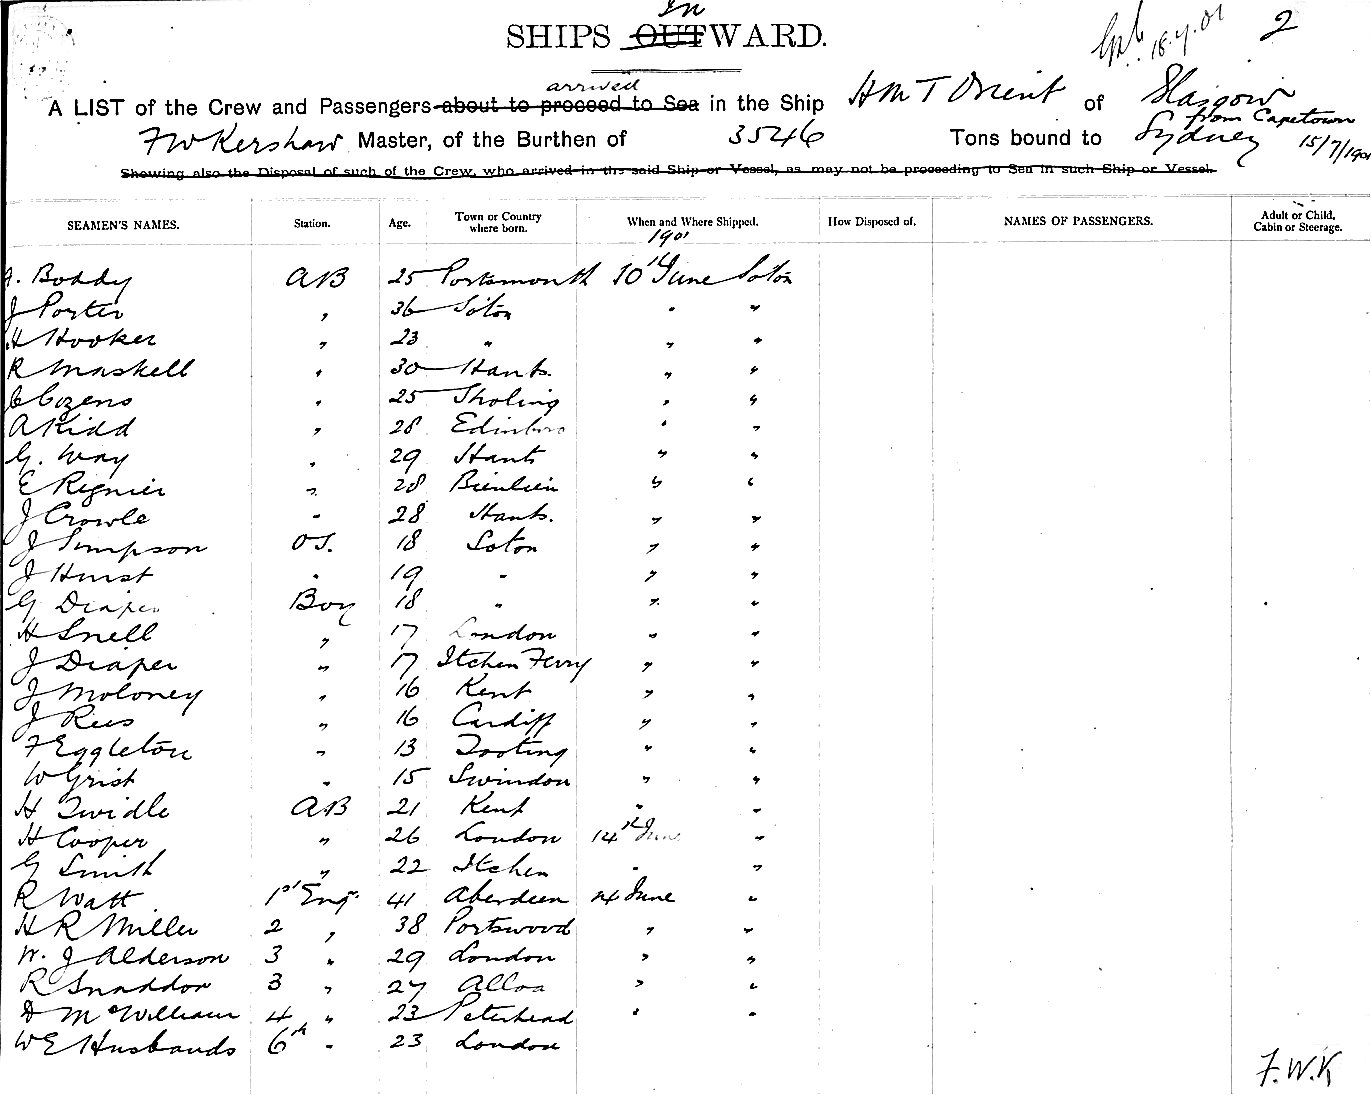 In
SHIPS OUTWARD.
18.7.01 2
arrived
A LIST of the Crew and Passengers about to proceed to Sea in the Ship HMT Orient of Glasgow
from Capetown
F W Kershaw Master, of the Burthen of 3546 Tons bound to Sydney 15/7/1901
Showing also the Disposal of such of the Crew, who arrived in the said Ship or Vessel, as may not be proceeding to Sea in such Ship or Vessel.
SEAMEN'S NAMES. Station. Age. Town or Country where born. When and Where Shipped. How Disposed of. NAMES OF PASSENGERS. Adult or Child, Cabin or Steerage.
1901
Boddy AB 25 Portsmouth 10th June Soton
J Porter " 36 Soton " "
H Hooker " 23 " " "
R Maskell " 30 Hants. " "
C Cozens " 25 Sholing " "
A Kidd " 28 Edinboro " "
G. Way " 29 Hants " "
E Regnier " 28 " "
J Crowle " 28 Hants. " "
J Simpson OS. 18 Soton " "
J Hurst " 19 " " "
G Diaper Boy 18 " " "
H Snell " 17 London " "
J Diaper " 17 Itchen Ferry " "
J Moloney " 16 Kent " "
J Rees " 16 Cardiff " "
F Eggleton " 13 Tooting " "
W Grist " 15 Swindon " "
H Twidle AB 21 Kent " "
H Cooper " 26 London 14th June "
G Smith " 22 Itchen " "
R Watt 1st Eng. 41 Aberdeen 24 June "
H R Miller 2 " 38 Portswood " "
W. J Alderson 3 " 29 London " "
R Snaddon 3 " 27 Alloa " "
D McWilliam 4 " 23 Peterhead " "
W E Husbands 6th " 23 London
F.W.K